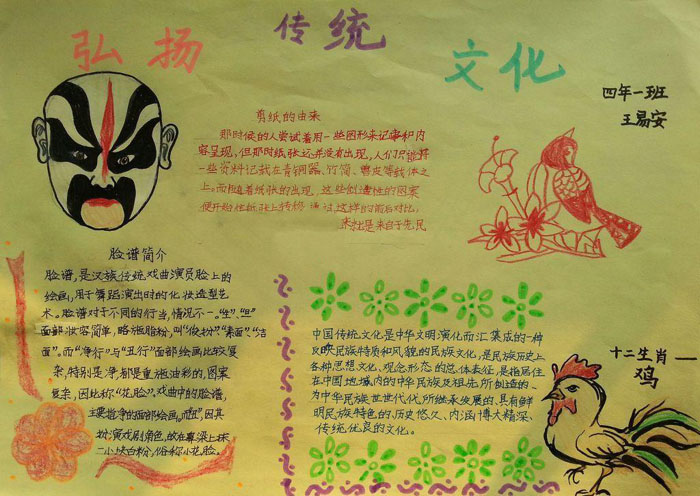 弘扬 传统 文化
四年一班
王易安
剪纸的由来
那时候的人尝试着用一些图形来记事和内
容呈现,但那时纸张还并没有出现,人们只能将
一些资料记载在青铜器、竹简、兽皮等载体之
上。而随着纸张的出现,这些创造性的图案
便开始在纸张上转移 通过这样的前后对比,
来就是来自于先民
脸谱简介
脸谱,是汉族传统戏曲演员脸上的
绘画,用于舞蹈演出时的化妆造型艺
术。脸谱对于不同的行当,情况不一。“生”、“旦”
面部妆容简单,略施脂粉,叫“俊扮”、“素面”、“洁
面”。而“净行”与“丑行”面部绘画比较复
杂,特别是净,都是重施油彩的,图案
复杂,因比称“花脸”。戏曲中的脸谱,
主要指净的面部绘画。而“丑”,因其
扮演戏剧角色,故在鼻梁上抹
一小块白粉,俗称小花脸。
中国传统文化是中华文明演化而汇集成的一种
反映民族特质和风貌的民族文化,是民族历史上
各种思想文化、观念形态的总体表征,是指居住
在中国地域内的中华民族及祖先所创造的、
为中华民族世世代代所继承发展的,具有鲜
明民族特色的、历史悠久、内涵博大精深、
传统优良的文化。
十二生肖——
鸡